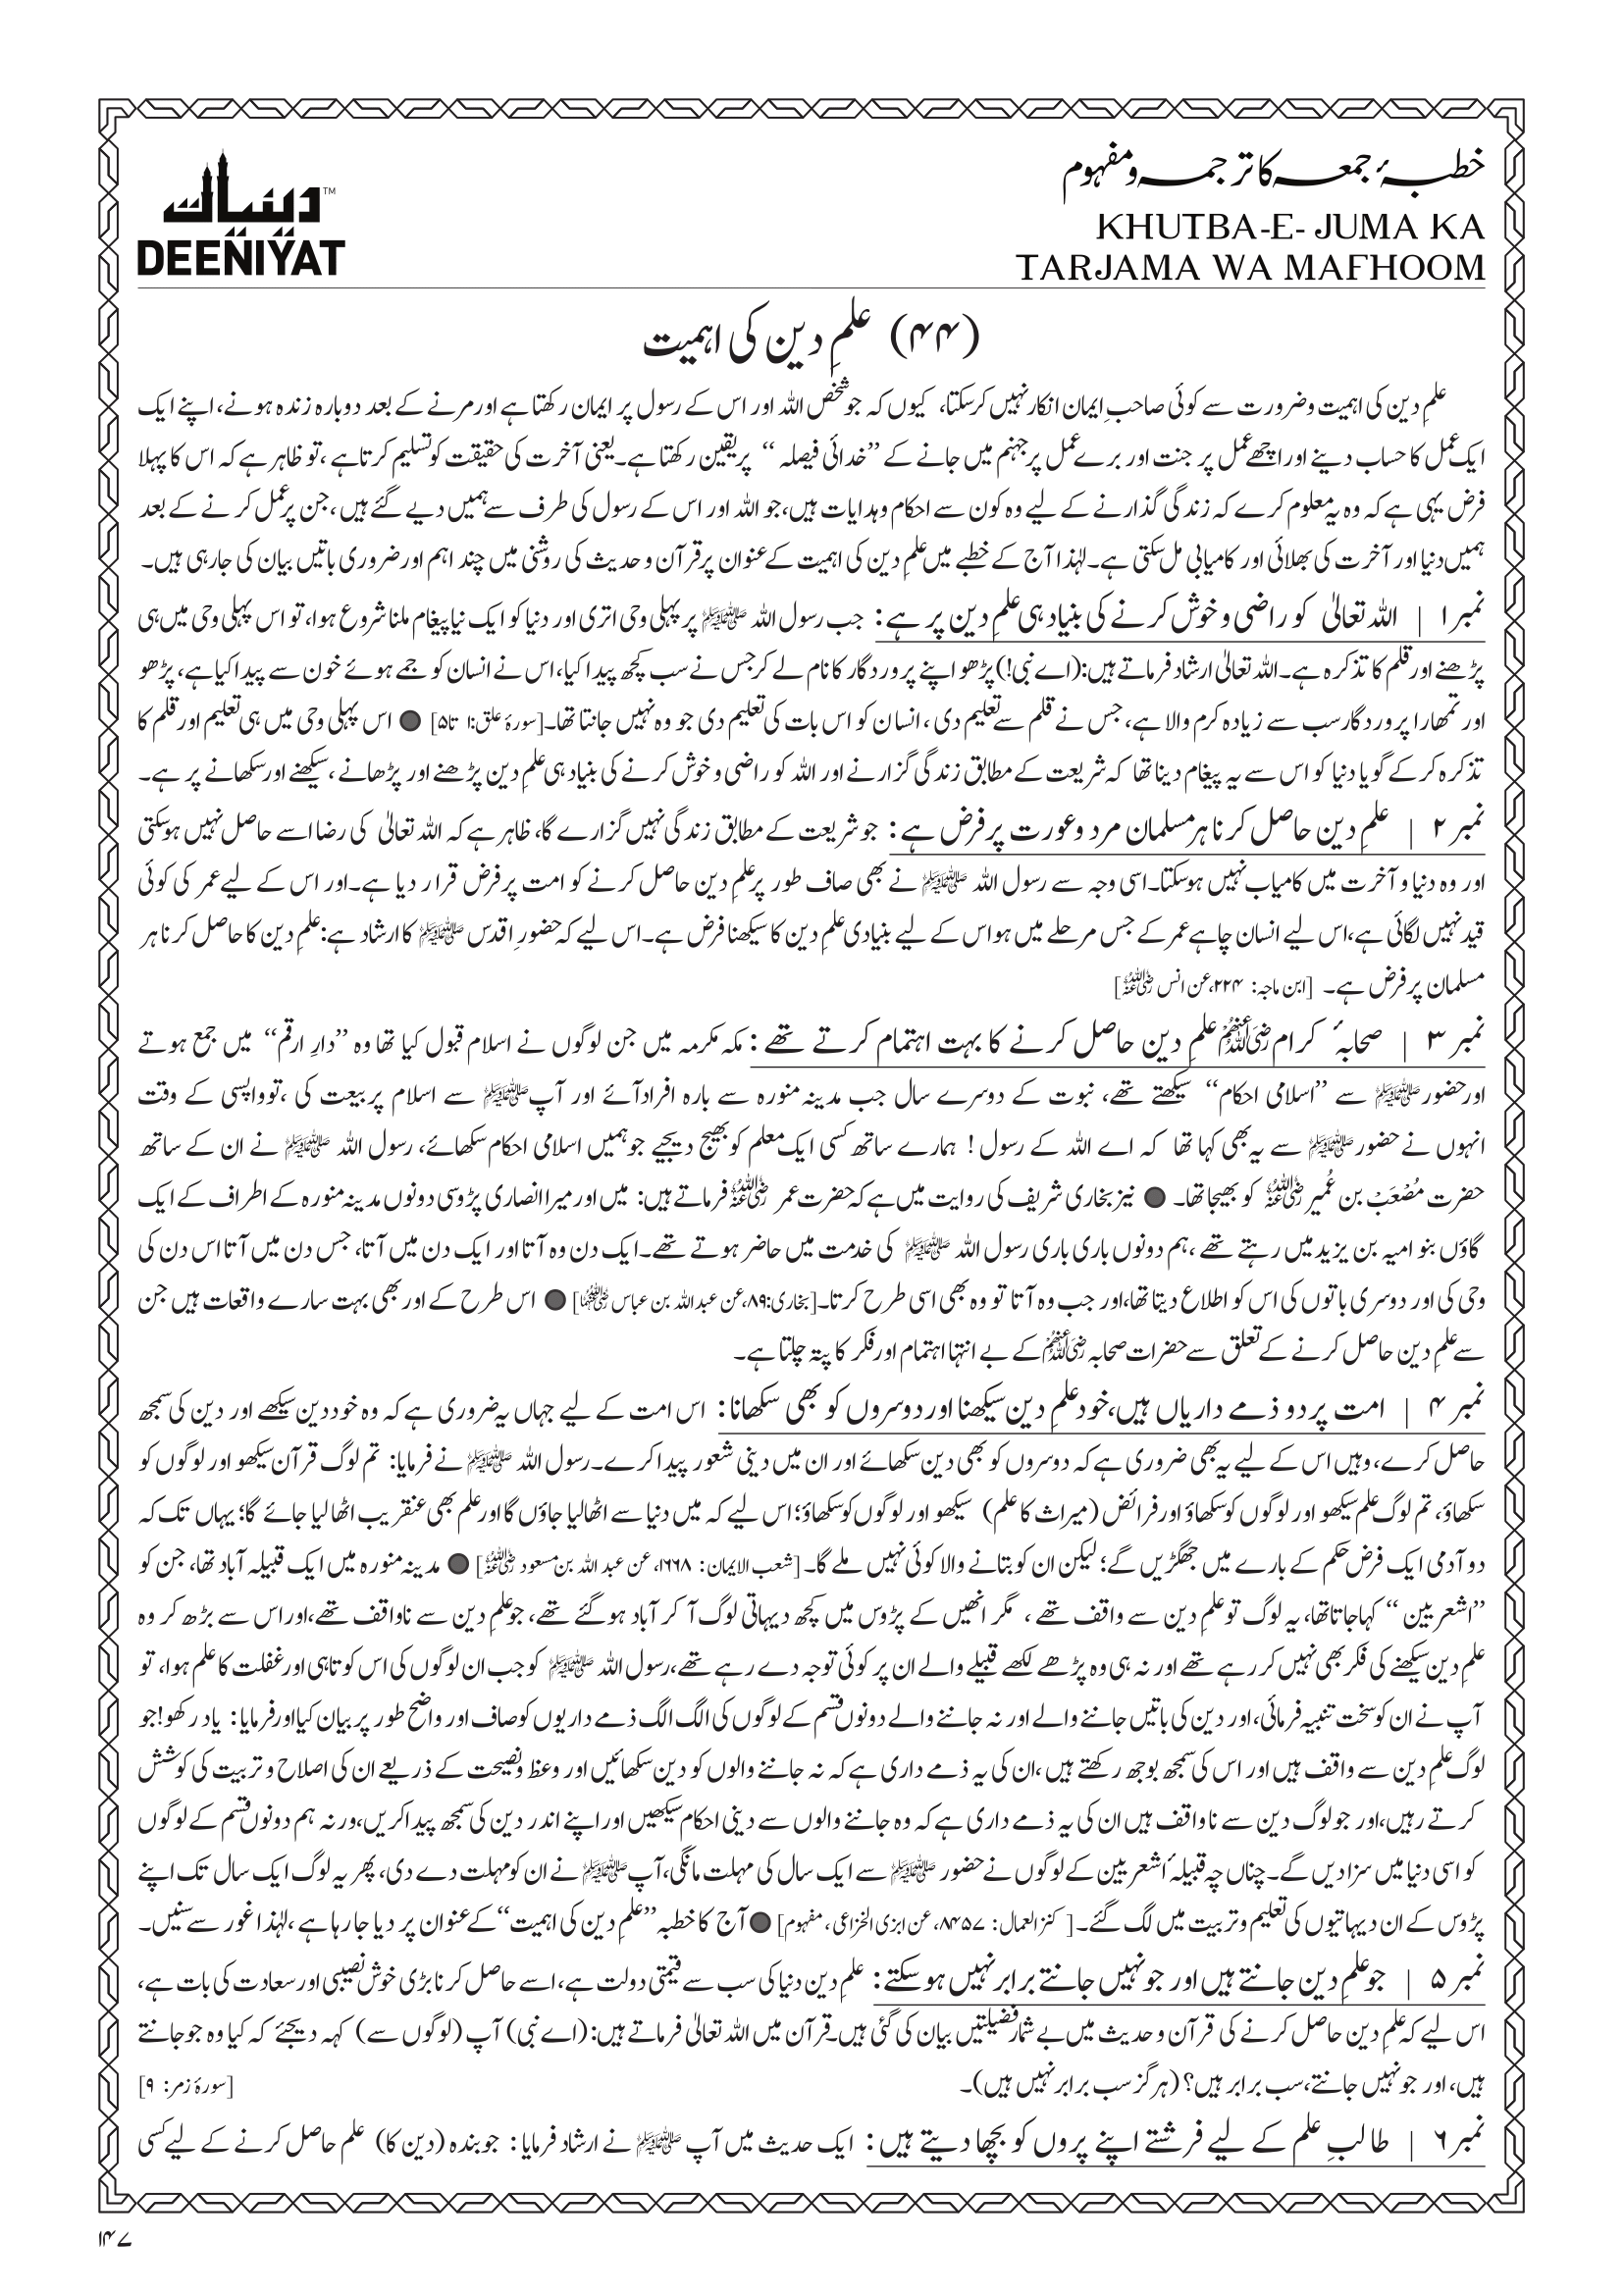 خطبۂ جمعہ کا ترجمہ و مفہوم
دینیات™
KHUTBA-E- JUMA KA
DEENIYAT
TARJAMA WA MAFHOOM
(۴۴) علمِ دین کی اہمیت
علمِ دین کی اہمیت و ضرورت سے کوئی صاحبِ ایمان انکار نہیں کرسکتا، کیوں کہ جو شخص اللہ اور اس کے رسول پر ایمان رکھتا ہے اور مرنے کے بعد دوبارہ زندہ ہونے، اپنے ایک
ایک عمل کا حساب دینے اور اچھے عمل پر جنت اور برے عمل پر جہنم میں جانے کے ”خدائی فیصلہ“ پر یقین رکھتا ہے۔ یعنی آخرت کی حقیقت کو تسلیم کرتا ہے، تو ظاہر ہے کہ اس کا پہلا
فرض یہی ہے کہ وہ یہ معلوم کرے کہ زندگی گذارنے کے لیے وہ کون سے احکام و ہدایات ہیں، جو اللہ اور اس کے رسول کی طرف سے ہمیں دیے گئے ہیں، جن پر عمل کرنے کے بعد
ہمیں دنیا اور آخرت کی بھلائی اور کامیابی مل سکتی ہے۔ لہٰذا آج کے خطبے میں علمِ دین کی اہمیت کے عنوان پر قرآن و حدیث کی روشنی میں چند اہم اور ضروری باتیں بیان کی جارہی ہیں۔
نمبر ۱ | اللہ تعالیٰ کو راضی و خوش کرنے کی بنیاد ہی علمِ دین پر ہے: جب رسول اللہ ﷺ پر پہلی وحی اتری اور دنیا کو ایک نیا پیغام ملنا شروع ہوا، تو اس پہلی وحی میں ہی
پڑھنے اور قلم کا تذکرہ ہے۔ اللہ تعالیٰ ارشاد فرماتے ہیں: (اے نبی!) پڑھو اپنے پروردگار کا نام لے کر جس نے سب کچھ پیدا کیا، اس نے انسان کو جمے ہوئے خون سے پیدا کیا ہے، پڑھو
اور تمھارا پروردگار سب سے زیادہ کرم والا ہے، جس نے قلم سے تعلیم دی، انسان کو اس بات کی تعلیم دی جو وہ نہیں جانتا تھا۔ [سورۂ علق: ۱ تا ۵] ● اس پہلی وحی میں ہی تعلیم اور قلم کا
تذکرہ کرکے گویا دنیا کو اس سے یہ پیغام دینا تھا کہ شریعت کے مطابق زندگی گزارنے اور اللہ کو راضی و خوش کرنے کی بنیاد ہی علمِ دین پڑھنے اور پڑھانے، سیکھنے اور سکھانے پر ہے۔
نمبر ۲ | علمِ دین حاصل کرنا ہر مسلمان مرد و عورت پر فرض ہے: جو شریعت کے مطابق زندگی نہیں گزارے گا، ظاہر ہے کہ اللہ تعالیٰ کی رضا اسے حاصل نہیں ہوسکتی
اور وہ دنیا و آخرت میں کامیاب نہیں ہوسکتا۔ اسی وجہ سے رسول اللہ ﷺ نے بھی صاف طور پر علمِ دین حاصل کرنے کو امت پر فرض قرار دیا ہے۔ اور اس کے لیے عمر کی کوئی
قید نہیں لگائی ہے، اس لیے انسان چاہے عمر کے جس مرحلے میں ہو اس کے لیے بنیادی علمِ دین کا سیکھنا فرض ہے۔ اس لیے کہ حضورِ اقدس ﷺ کا ارشاد ہے: علمِ دین کا حاصل کرنا ہر
مسلمان پر فرض ہے۔ [ابن ماجہ: ۲۲۴، عن انس رضی اللہ عنہ]
نمبر ۳ | صحابۂ کرام رضی اللہ عنہم علمِ دین حاصل کرنے کا بہت اہتمام کرتے تھے: مکہ مکرمہ میں جن لوگوں نے اسلام قبول کیا تھا وہ ”دارِ ارقم“ میں جمع ہوتے
اور حضور ﷺ سے ”اسلامی احکام“ سیکھتے تھے، نبوت کے دوسرے سال جب مدینہ منورہ سے بارہ افراد آئے اور آپ ﷺ سے اسلام پر بیعت کی، تو واپسی کے وقت
انہوں نے حضور ﷺ سے یہ بھی کہا تھا کہ اے اللہ کے رسول! ہمارے ساتھ کسی ایک معلم کو بھیج دیجیے جو ہمیں اسلامی احکام سکھائے، رسول اللہ ﷺ نے ان کے ساتھ
حضرت مُصْعَبْ بن عُمیر رضی اللہ عنہ کو بھیجا تھا۔ ● نیز بخاری شریف کی روایت میں ہے کہ حضرت عمر رضی اللہ عنہ فرماتے ہیں: میں اور میرا انصاری پڑوسی دونوں مدینہ منورہ کے اطراف کے ایک
گاؤں بنو امیہ بن یزید میں رہتے تھے، ہم دونوں باری باری رسول اللہ ﷺ کی خدمت میں حاضر ہوتے تھے۔ ایک دن وہ آتا اور ایک دن میں آتا، جس دن میں آتا اس دن کی
وحی کی اور دوسری باتوں کی اس کو اطلاع دیتا تھا، اور جب وہ آتا تو وہ بھی اسی طرح کرتا۔ [بخاری: ۸۹، عن عبد اللہ بن عباس رضی اللہ عنہما] ● اس طرح کے اور بھی بہت سارے واقعات ہیں جن
سے علمِ دین حاصل کرنے کے تعلق سے حضرات صحابہ رضی اللہ عنہم کے بے انتہا اہتمام اور فکر کا پتہ چلتا ہے۔
نمبر ۴ | امت پر دو ذمے داریاں ہیں، خود علمِ دین سیکھنا اور دوسروں کو بھی سکھانا: اس امت کے لیے جہاں یہ ضروری ہے کہ وہ خود دین سیکھے اور دین کی سمجھ
حاصل کرے، وہیں اس کے لیے یہ بھی ضروری ہے کہ دوسروں کو بھی دین سکھائے اور ان میں دینی شعور پیدا کرے۔ رسول اللہ ﷺ نے فرمایا: تم لوگ قرآن سیکھو اور لوگوں کو
سکھاؤ، تم لوگ علم سیکھو اور لوگوں کو سکھاؤ اور فرائض (میراث کا علم) سیکھو اور لوگوں کو سکھاؤ؛ اس لیے کہ میں دنیا سے اٹھا لیا جاؤں گا اور علم بھی عنقریب اٹھا لیا جائے گا؛ یہاں تک کہ
دو آدمی ایک فرض حکم کے بارے میں جھگڑیں گے؛ لیکن ان کو بتانے والا کوئی نہیں ملے گا۔ [شعب الایمان: ۱۶۶۸، عن عبد اللہ بن مسعود رضی اللہ عنہ] ● مدینہ منورہ میں ایک قبیلہ آباد تھا، جن کو
”اشعریین“ کہا جاتا تھا، یہ لوگ تو علمِ دین سے واقف تھے، مگر انھیں کے پڑوس میں کچھ دیہاتی لوگ آ کر آباد ہوگئے تھے، جو علمِ دین سے ناواقف تھے، اور اس سے بڑھ کر وہ
علمِ دین سیکھنے کی فکر بھی نہیں کر رہے تھے اور نہ ہی وہ پڑھے لکھے قبیلے والے ان پر کوئی توجہ دے رہے تھے، رسول اللہ ﷺ کو جب ان لوگوں کی اس کوتاہی اور غفلت کا علم ہوا، تو
آپ نے ان کو سخت تنبیہ فرمائی، اور دین کی باتیں جاننے والے اور نہ جاننے والے دونوں قسم کے لوگوں کی الگ الگ ذمے داریوں کو صاف اور واضح طور پر بیان کیا اور فرمایا: یاد رکھو! جو
لوگ علمِ دین سے واقف ہیں اور اس کی سمجھ بوجھ رکھتے ہیں، ان کی یہ ذمے داری ہے کہ نہ جاننے والوں کو دین سکھائیں اور وعظ و نصیحت کے ذریعے ان کی اصلاح و تربیت کی کوشش
کرتے رہیں، اور جو لوگ دین سے ناواقف ہیں ان کی یہ ذمے داری ہے کہ وہ جاننے والوں سے دینی احکام سیکھیں اور اپنے اندر دین کی سمجھ پیدا کریں، ورنہ ہم دونوں قسم کے لوگوں
کو اسی دنیا میں سزا دیں گے۔ چناں چہ قبیلۂ اشعریین کے لوگوں نے حضور ﷺ سے ایک سال کی مہلت مانگی، آپ ﷺ نے ان کو مہلت دے دی، پھر یہ لوگ ایک سال تک اپنے
پڑوس کے ان دیہاتیوں کی تعلیم و تربیت میں لگ گئے۔ [کنز العمال: ۸۴۵۷، عن ابزی الخزاعی، مفہوم] ● آج کا خطبہ ”علمِ دین کی اہمیت“ کے عنوان پر دیا جارہا ہے، لہٰذا غور سے سنیں۔
نمبر ۵ | جو علمِ دین جانتے ہیں اور جو نہیں جانتے برابر نہیں ہوسکتے: علمِ دین دنیا کی سب سے قیمتی دولت ہے، اسے حاصل کرنا بڑی خوش نصیبی اور سعادت کی بات ہے،
اس لیے کہ علمِ دین حاصل کرنے کی قرآن و حدیث میں بے شمار فضیلتیں بیان کی گئی ہیں۔ قرآن میں اللہ تعالیٰ فرماتے ہیں: (اے نبی) آپ (لوگوں سے) کہہ دیجئے کہ کیا وہ جو جانتے
ہیں، اور جو نہیں جانتے، سب برابر ہیں؟ (ہرگز سب برابر نہیں ہیں)۔ [سورۂ زمر: ۹]
نمبر ۶ | طالبِ علم کے لیے فرشتے اپنے پروں کو بچھا دیتے ہیں: ایک حدیث میں آپ ﷺ نے ارشاد فرمایا: جو بندہ (دین کا) علم حاصل کرنے کے لیے کسی
۱۴۷